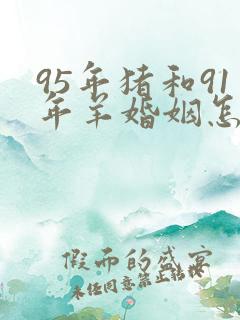 95年猪和91
年羊婚姻怎
假而的盛宴
未任同意禁止转模